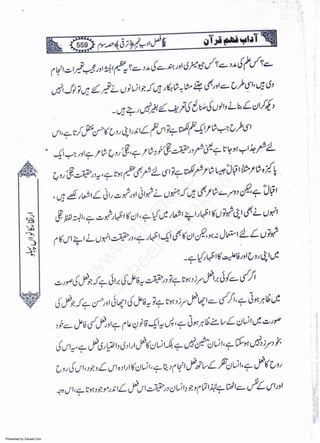 آداب فہم قرآن
559
سے؟ کس علم کی مدد سے؟ کس جیومیٹری اور ہندسے کی مدد سے؟ یہ عظیم الجثہ اور عجیب تعمیرات انجام
دی ہیں، اسی طرح سے اور بھی جتنے مشابہ شاہکار ہیں کہ جو انسانوں نے تعمیر کئے ہیں تو لوگ انہیں
دیکھ کر ان کے بنانے والوں کی صناعی کی تعریف کئے بغیر نہیں رہتے ہیں۔
اسی طرح جب شاعر ایک نظم لکھتا ہے تو اس نظم کے اندر اپنی روح کا حسن منتقل کرتا ہے، اس
لئے شعر جذاب ہو جاتا ہے یعنی شعر در حقیقت تجلی خود شاعر ہے، تجلی روح شاعر ہے اور جب ایک
پاکیزہ شاعر مثلاً اقبالؒ جیسا شاعر لکھتا ہے تو اسی لئے شعر بھی عظیم ہوتا ہے، یہ در حقیقت تجلی روح
اقبالؒ ہے لیکن دوسرے شاعر بھی ہیں کہ جنہوں نے شہوانی اور شہوت رانی کے اشعار لکھے ہیں،
انہوں نے بھی اپنی شہوتوں کا اظہار اپنے اشعار میں کیا ہے، ان کا اظہار شہوت ہے، البتہ لفظ تجلی
شہوتوں کے لئے استعمال نہ ہو، لیکن ان کا بھی ایک اظہار ہے، در حقیقت انہوں نے اپنے اس کام
میں اپنی روح اور فاعلیت کا اظہار کیا ہے۔
اگر کسی سے کوئی برا فعل سرزد ہوتا ہے تو در حقیقت یہ فاعل کی برائی ہے کہ جو فعل کی صورت
میں ظاہر ہوتی ہے، اگر کسی سے اچھا فعل سرزد ہوتا ہے تو یہ فاعل کی اچھائی اور حسن ہے کہ جو فعل کی
صورت میں انسان کے سامنے ظاہر ہوتی ہے، پس یہ ایک قانون عام ہے اور فعل کسی فاعل سے خود
بخود سرزد نہیں ہو سکتا ہے، انسان مشین نہیں ہے بلکہ انسان کا فعل ارادی و اختیاری فعل ہے، یہ اس کی
روح کا فعل ہے، انسان تفکر کے ساتھ فعل انجام دیتا ہے، انسان کا ارادہ اس کے وجود، اس کی روح
اور اس کے نفس سے اٹھتا ہے لہذا تمام وجود انسان در حقیقت اس فعل کے اندر موجود ہوتا ہے، اس وجہ
Presented by Ziaraat.Com